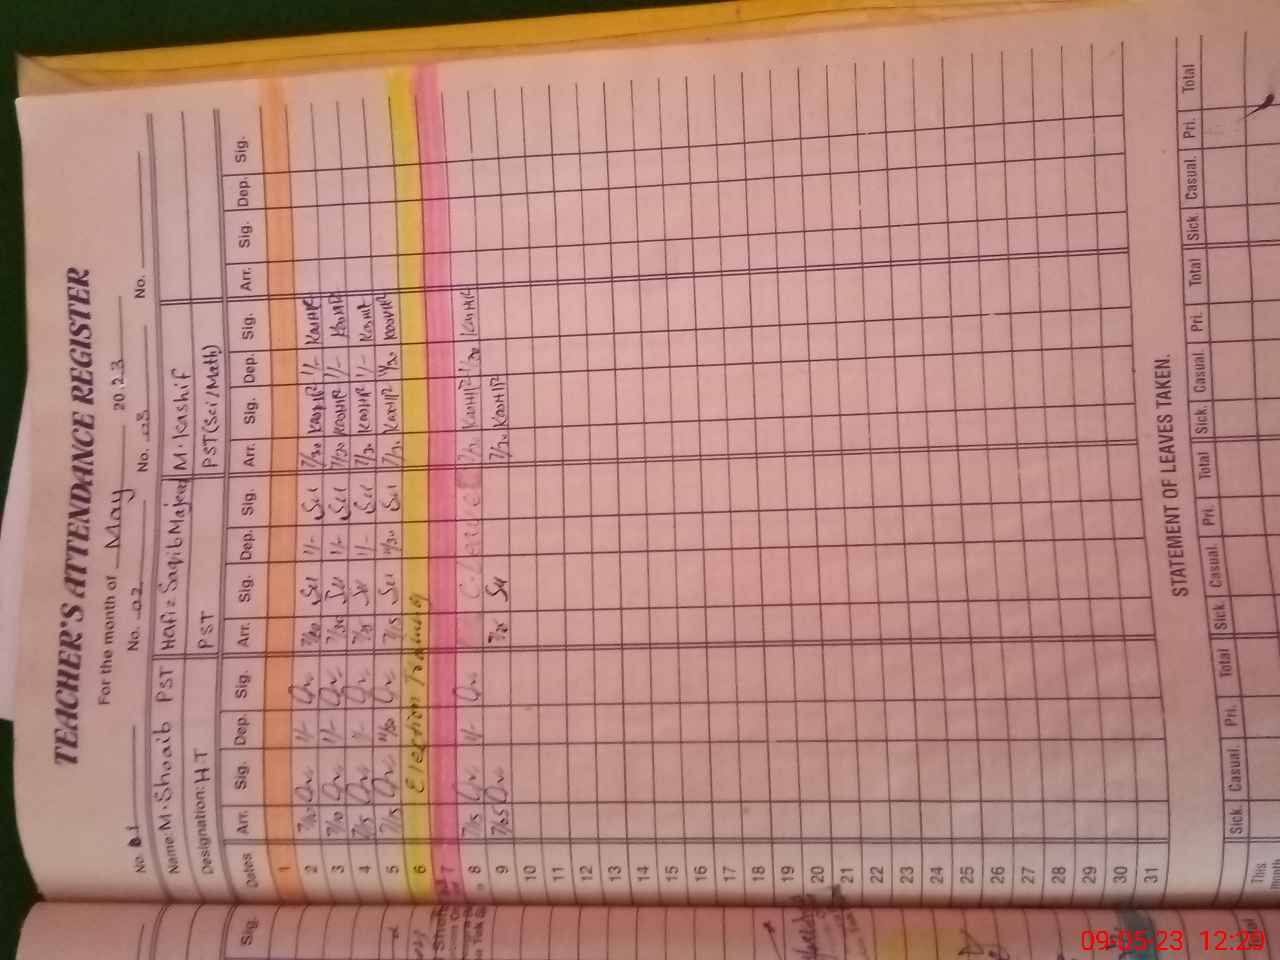 TEACHER'S ATTENDANCE REGISTER
For the month of May 2023
No. 01 No. 02 No. 03 No.
Name: M. Shoaib PST Hafiz Saqib Majeed M. Kashif
Designation: HT PST PST (Sci/Math)
Dates Arr. Sig. Dep. Sig. Arr. Sig. Dep. Sig. Arr. Sig. Dep. Sig. Arr. Sig. Dep. Sig.
1
2 7/10 1/- 7/20 1/- 7/30 KASHIF 1/- KASHIF
3 7/10 1/- 7/30 1/- 7/30 KASHIF 1/- KASHIF
4 7/15 1/- 7/15 1/- 7/30 KASHIF 1/- KASHIF
5 7/15 11/30 7/15 11/30 7/30 KASHIF 11/30 KASHIF
6 Election Training
7
8 7/15 1/- C-Leave 7/30 KASHIF KASHIF
9 7/05 7/25 7/30 KASHIF
10
11
12
13
14
15
16
17
18
19
20
21
22
23
24
25
26
27
28
29
30
31
STATEMENT OF LEAVES TAKEN.
Sick. Casual. Pri. Total Sick. Casual. Pri. Total Sick. Casual. Pri. Total Sick. Casual. Pri. Total
This
month
Sig.
09-05-23 12:20